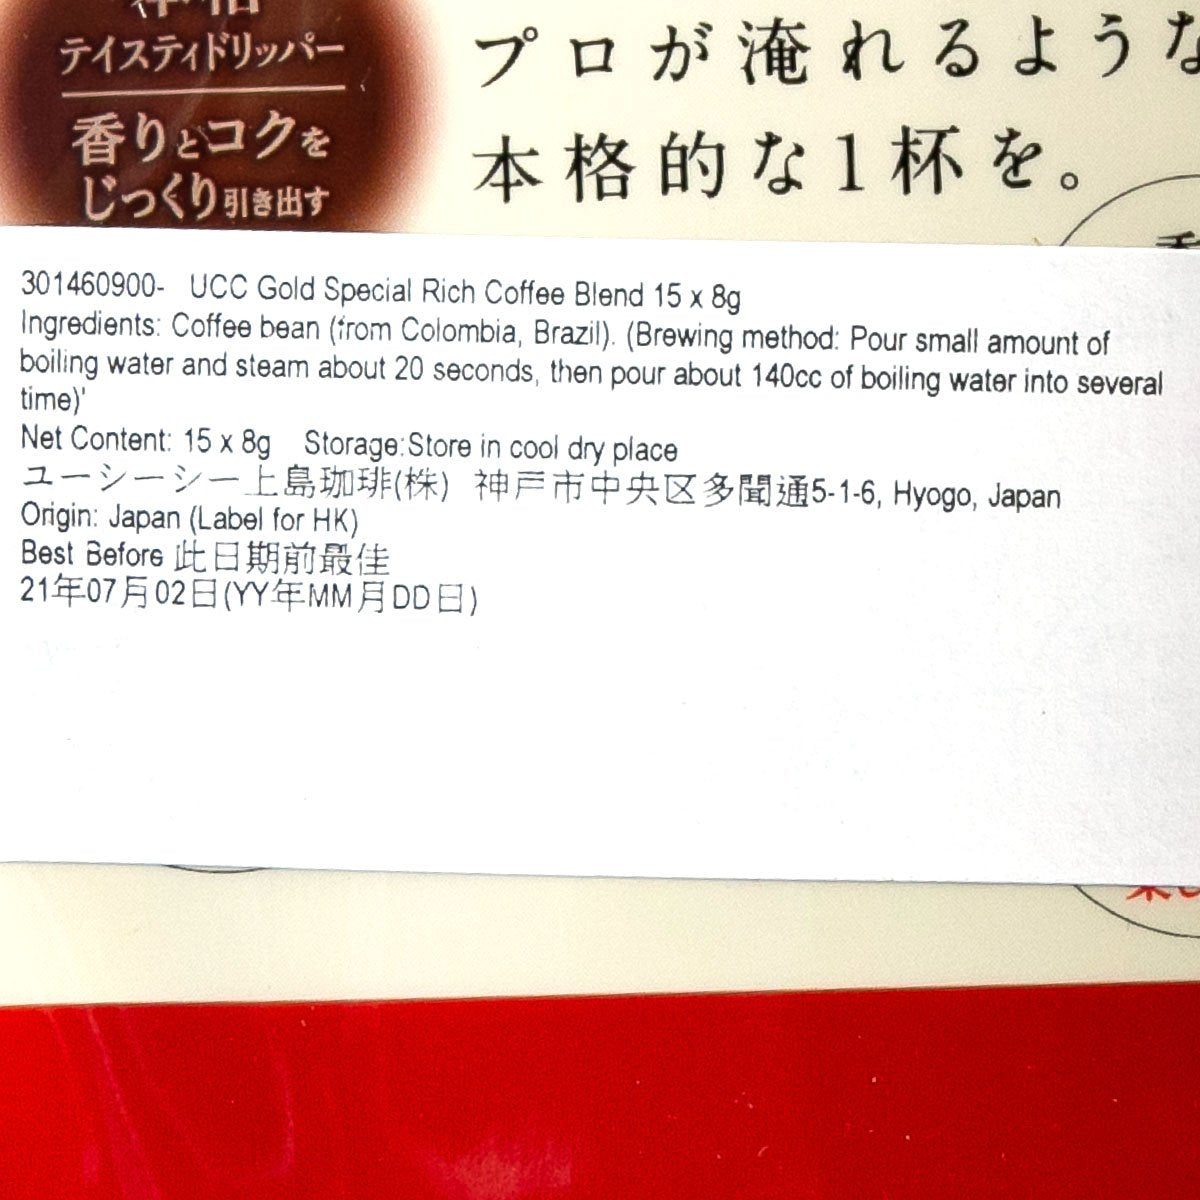 テイスティドリッパー
香りとコクを
じっくり引き出す
プロが淹れるような
本格的な1杯を。
301460900- UCC Gold Special Rich Coffee Blend 15 x 8g
Ingredients: Coffee bean (from Colombia, Brazil). (Brewing method: Pour small amount of
boiling water and steam about 20 seconds, then pour about 140cc of boiling water into several
time)'
Net Content: 15 x 8g Storage:Store in cool dry place
ユーシーシー上島珈琲(株) 神戸市中央区多聞通5-1-6, Hyogo, Japan
Origin: Japan (Label for HK)
Best Before 此日期前最佳
21年07月02日(YY年MM月DD日)